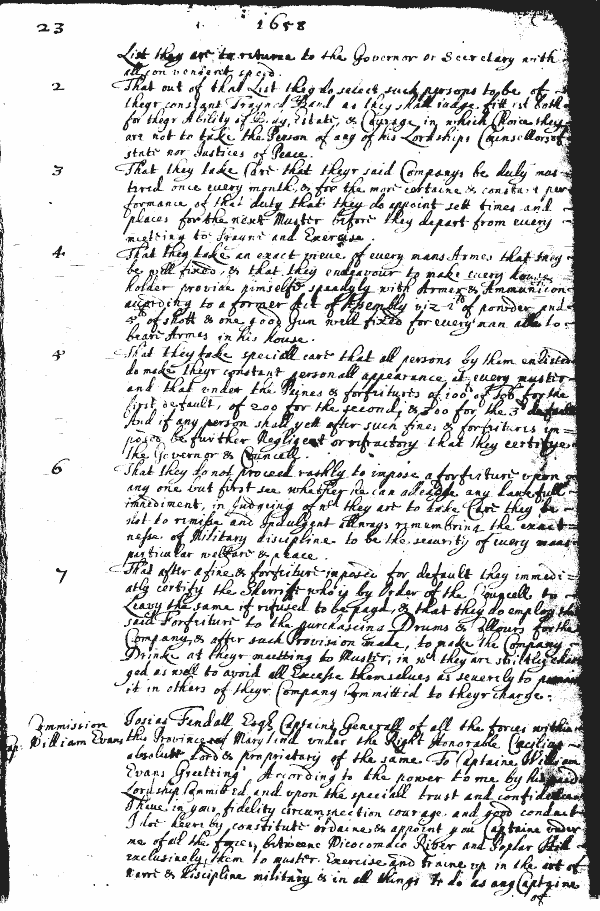 23 1658
List they are to returne to the Governor or Secretary with
all con venient speed.
2 That out of that List they do select such persons to be of
theyr constant Trayned Band as they shall iudge fitt both
for theyr Ability of Body, Estate, & Courage, in which Choice they
are not to take the Person of any of his Lordships Counsellors of
state nor Justices of Peace.
3 That they take Care that theyr said Companys be duly mus
tered once every month, & for the more certaine & constant per
formance of that duty that they do appoint sett times and
places for the next Muster before they depart from every
meeting to Trayne and Exercise
4 That they take an exact viewe of every mans Armes that they
be well fixed, & that they endeavour to make every house
holder provide himselfe speedyly with Armes & Ammunicon
according to a former Act of Assembly viz 2ˡᵇ of powder and
5ˡᵇ of shott & one good Gun well fixed for every man able to
beare Armes in his house.
5 That they take speciall care that all persons by them enlisted
do make theyr constant personall appearance at every muster
and that under the Paines & forfeitures of 100ˡᵇ of Tob for the
first default, of 200 for the second, & 300 for the 3ᵈ default
And if any person shall yett after such fines & forfeitures im
posed be further Negligent or refractory that they certifye
the Governor & Councell
6 That they do not proceed rashly to impose a forfeiture upon
any one but first see whether he can alledge any lawfull
impediment, in Judging of wᶜʰ they are to take Care they be
not to remisse and Indulgent Allways remembring the exact
nesse of Military discipline to be the security of every mans
particular welfare & peace.
7 That after a fine & forfeiture imposed for default they immedi
atly certify the Sherriffe who is by Order of the Councell to
Leavy the same if refused to be payd, & that they do employ the
said Forfeiture to the purchasing Drums & Collours for the
Company, & after such Provision made, to make the Company
Drinke at theyr meeting to Muster, in wᶜʰ they are strictly char
ged as well to avoid all Excesse themselves as severely to punish
it in others of theyr Company Committed to theyr charge.
Commission
Cap. William Evans
Josias Fendall Esqʳ Captaine Generall of all the forces within
the Province of Maryland under the Right Honorable Caecilius
absolute Lord & propriatary of the same. To Captaine William
Evans Greeting. According to the power to me by his said
Lordship Committed and upon the speciall trust and confidence
I have in your fidelity circumspection courage and good conduct
I doe heereby constitute ordaine & appoint you Captaine under
me of all the forces betweene Wicocomaco River and Poplar Hill
exclusively, them to muster Exercise and traine up in the art of
warre & Discipline military & in all things to do as any Captaine
of